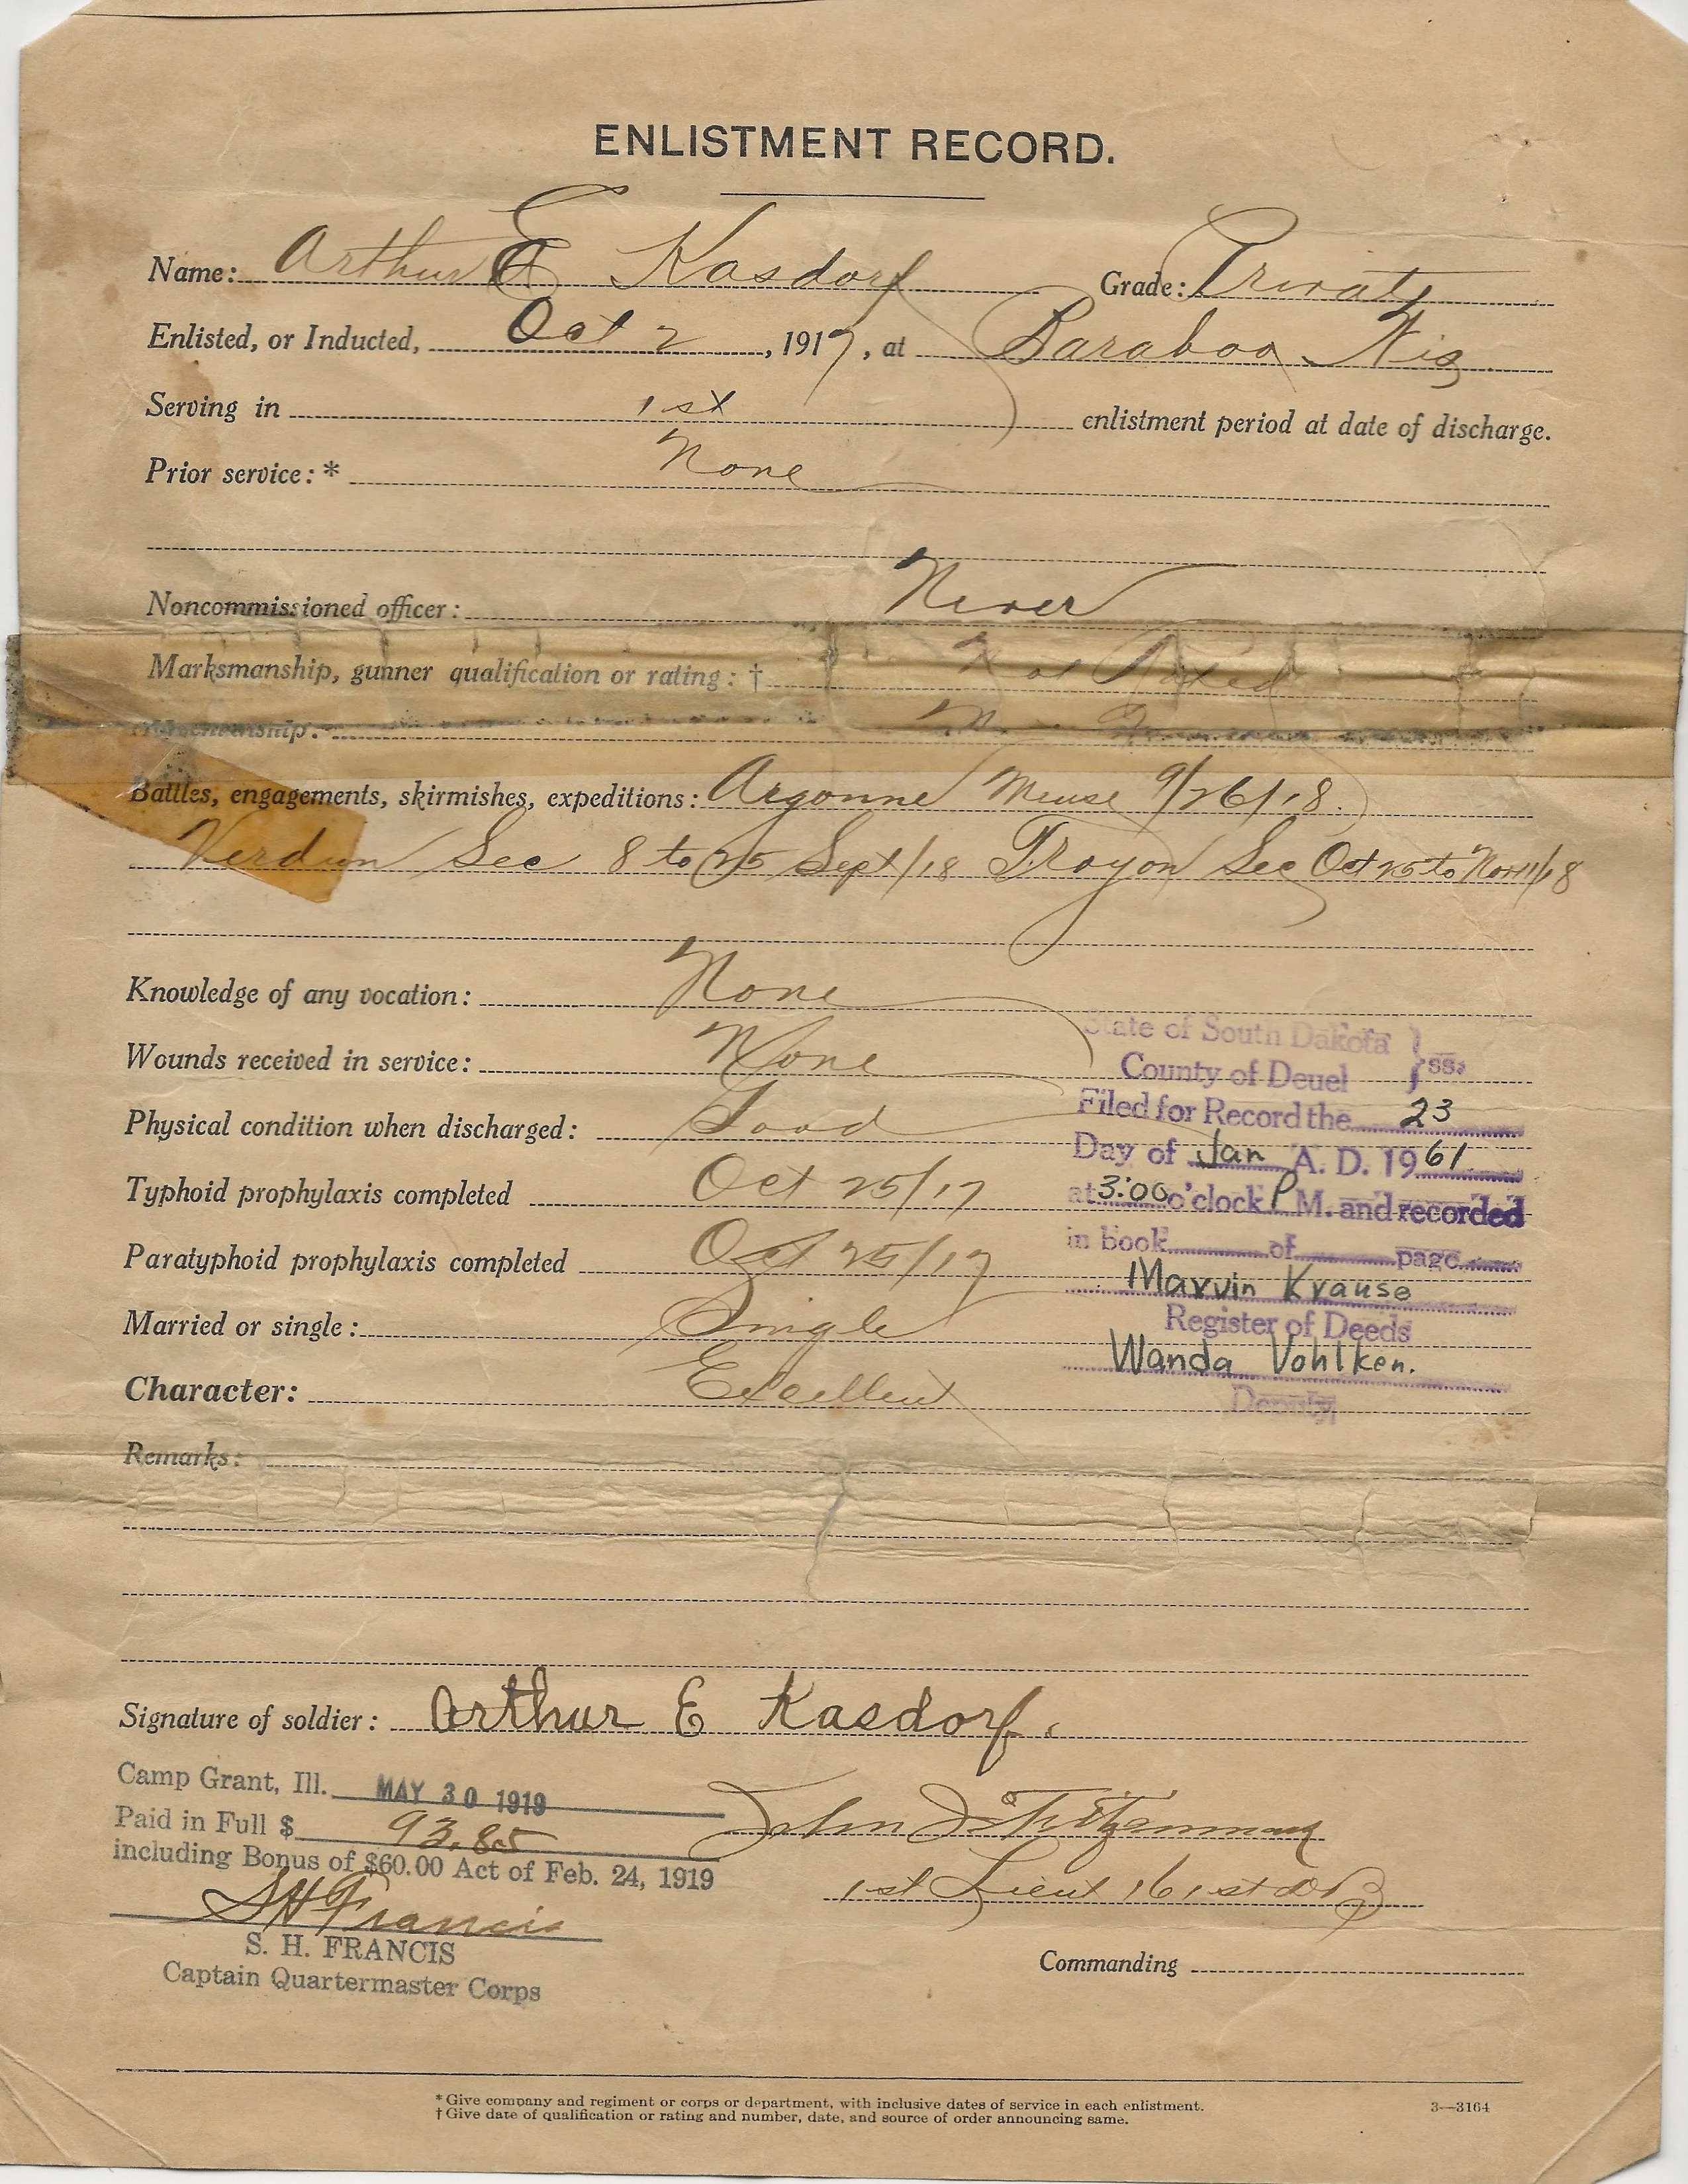 ENLISTMENT RECORD.
Name: Arthur E Kasdorf Grade: Private
Enlisted, or Inducted, Oct 2, 1917, at Baraboo Wis
Serving in 1st enlistment period at date of discharge.
Prior service:* None
Noncommissioned officer: Never
Marksmanship, gunner qualification or rating:† Not Rated
Horsemanship:
Battles, engagements, skirmishes, expeditions: Argonne Meuse 9/26/18.
Verdun Sec 8 to 25 Sept/18 Troyon Sec Oct 25 to Nov 11/18
Knowledge of any vocation: None
Wounds received in service: None
Physical condition when discharged: Good
Typhoid prophylaxis completed Oct 25/17
Paratyphoid prophylaxis completed Oct 25/17
Married or single: Single
Character: Excellent
Remarks:
State of South Dakota } ss.
County of Deuel
Filed for Record the 23
Day of Jan A. D. 1961
at 3:00 o'clock P M. and recorded
in book of page
Marvin Krause
Register of Deeds
Wanda Vohlken.
Deputy
Signature of soldier: Arthur E Kasdorf.
Camp Grant, Ill. MAY 30 1919
Paid in Full $ 93.85
including Bonus of $60.00 Act of Feb. 24, 1919
S H Francis
S. H. FRANCIS
Captain Quartermaster Corps
John J
1st Lieut 161st DB
Commanding
* Give company and regiment or corps or department, with inclusive dates of service in each enlistment.
† Give date of qualification or rating and number, date, and source of order announcing same.
3—3164